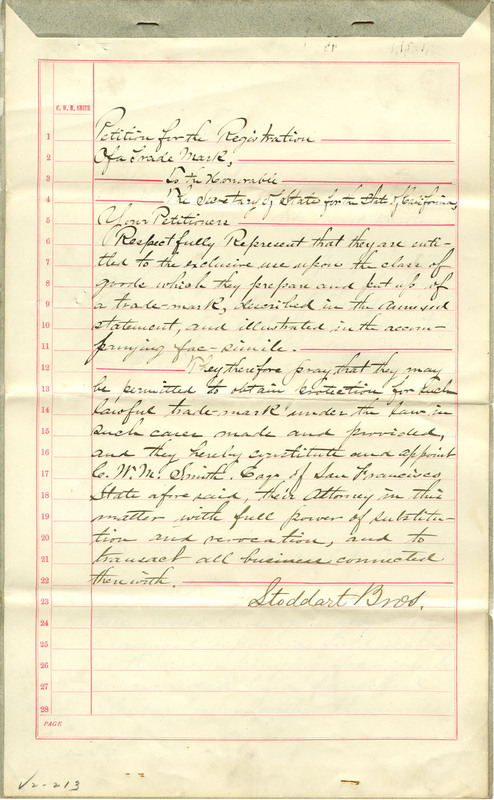 C. W. M. SMITH
1 Petition for the Registration
2 Of a Trade Mark,
3 To the Honorable
4 The Secretary of State for the State of California,
5 Your Petitioners
6 Respectfully Represent that they are enti-
7 tled to the exclusive use upon the class of
8 goods which they prepare and put up of
9 a trade-mark, described in the annexed
10 statement, and illustrated in the accom-
11 panying fac-simile.
12 They therefore pray that they may
13 be permitted to obtain protection for such
14 lawful trade-mark under the law in
15 such cases made and provided,
16 and they hereby constitute and appoint
17 C. W. M. Smith, Esq. of San Francisco
18 State aforesaid, their Attorney in this
19 matter with full power of substitu-
20 tion and revocation, and to
21 transact all business connected
22 therewith.
23 Stoddart Bros.
24
25
26
27
28
PAGE
V2-213